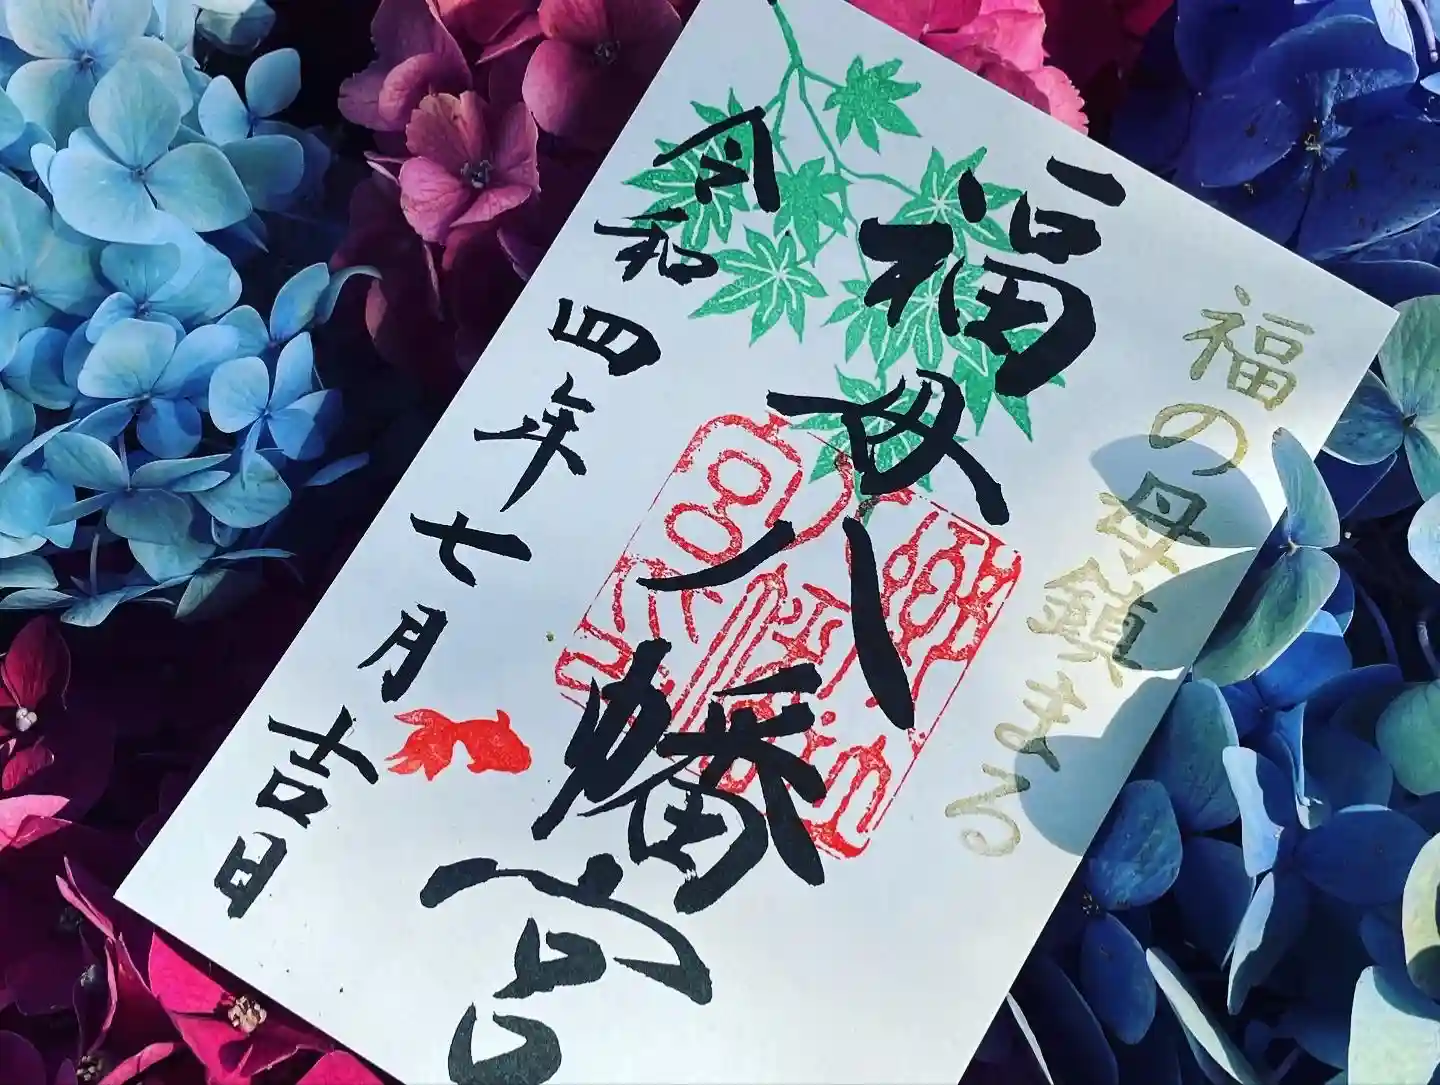 福の母鎮まる
福母八幡宮
令和四年七月吉日